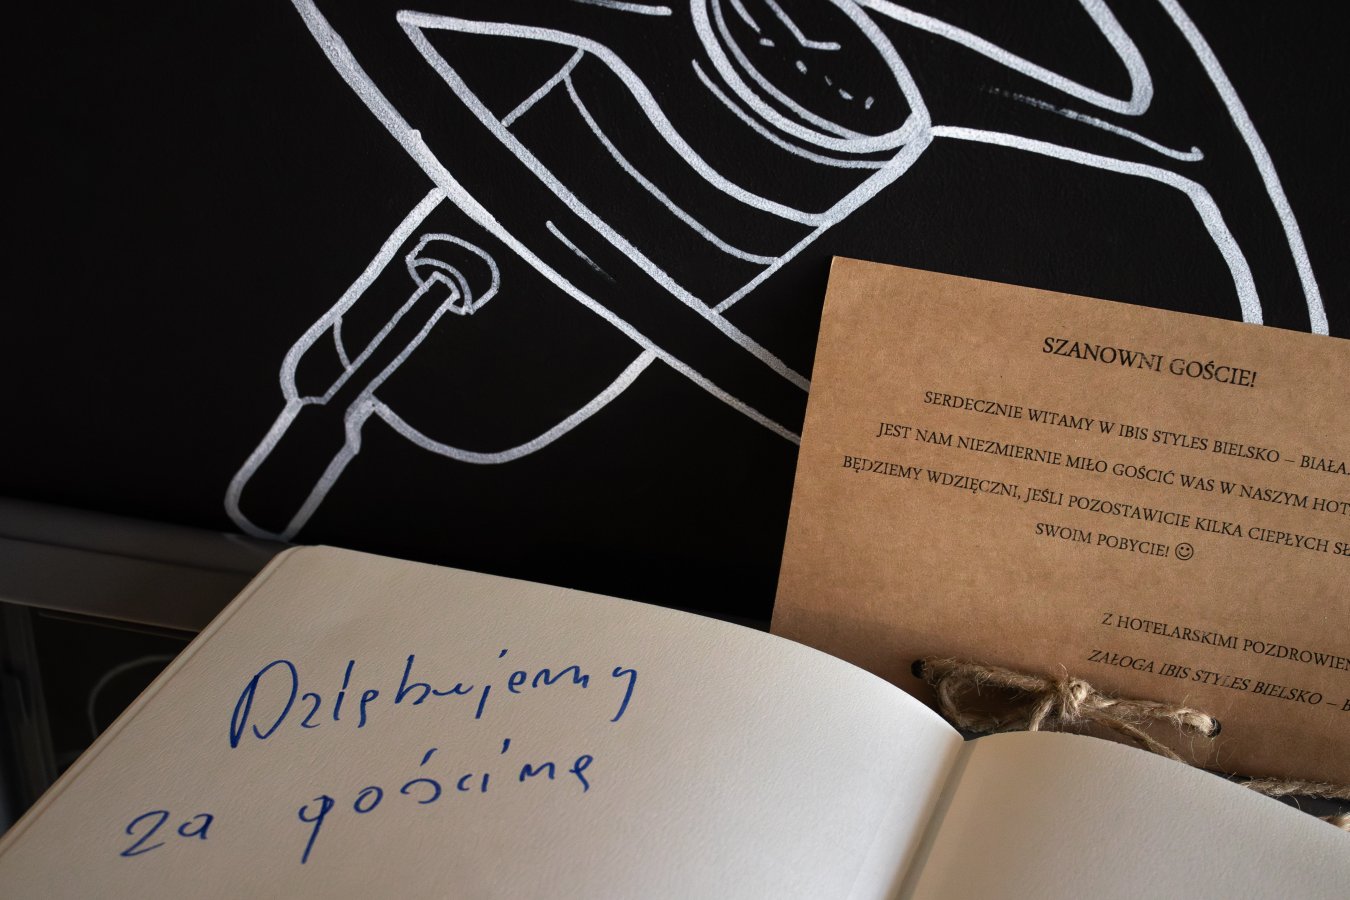 SZANOWNI GOŚCIE!
SERDECZNIE WITAMY W IBIS STYLES BIELSKO – BIAŁA.
JEST NAM NIEZMIERNIE MIŁO GOŚCIĆ WAS W NASZYM
BĘDZIEMY WDZIĘCZNI, JEŚLI POZOSTAWICIE KILKA CIEPŁYCH
SWOIM POBYCIE! ☺
Z HOTELARSKIMI
ZAŁOGA IBIS STYLES BIELSKO –
Dziękujemy
za gościnę